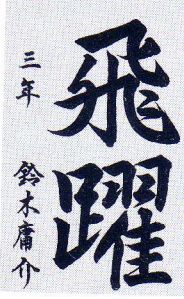 飛躍
三年 鈴木庸介